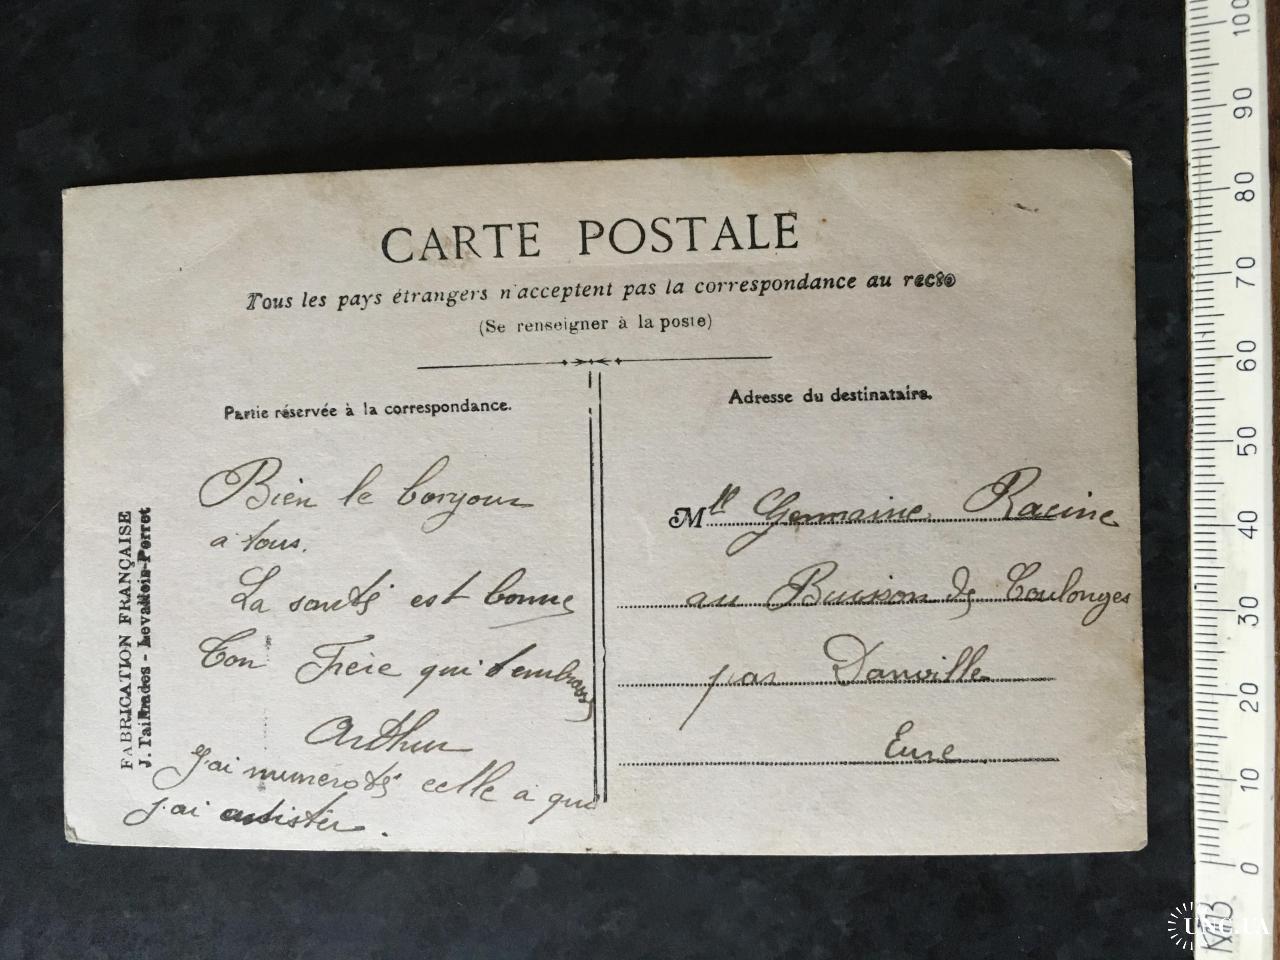 CARTE POSTALE
Tous les pays étrangers n'acceptent pas la correspondance au recto
(Se renseigner à la poste)
Partie réservée à la correspondance.
Adresse du destinataire.
Bien le bonjour
a tous.
La santé est bonne
Ton Frère qui t'embrasse
Arthur
J'ai numeroté celle a qui
j'ai assister.
Mlle Germaine Racine
au Buisson de Coulonges
par Damville
Eure
FABRICATION FRANÇAISE
Levallois-Perret
100
90
80
70
60
50
40
30
20
10
0
UNC.UA